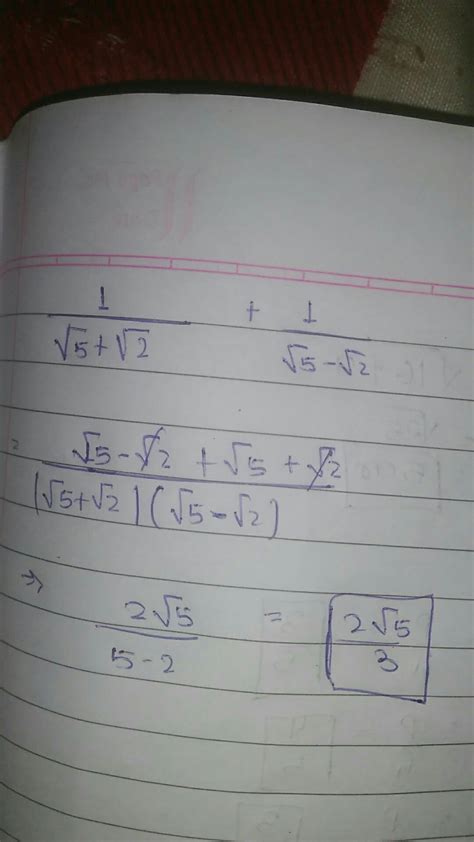 1/(√5+√2) + 1/(√5-√2)
= (√5-√2 + √5 + √2)/((√5+√2)(√5-√2))
⇒ 2√5/(5-2) = 2√5/3